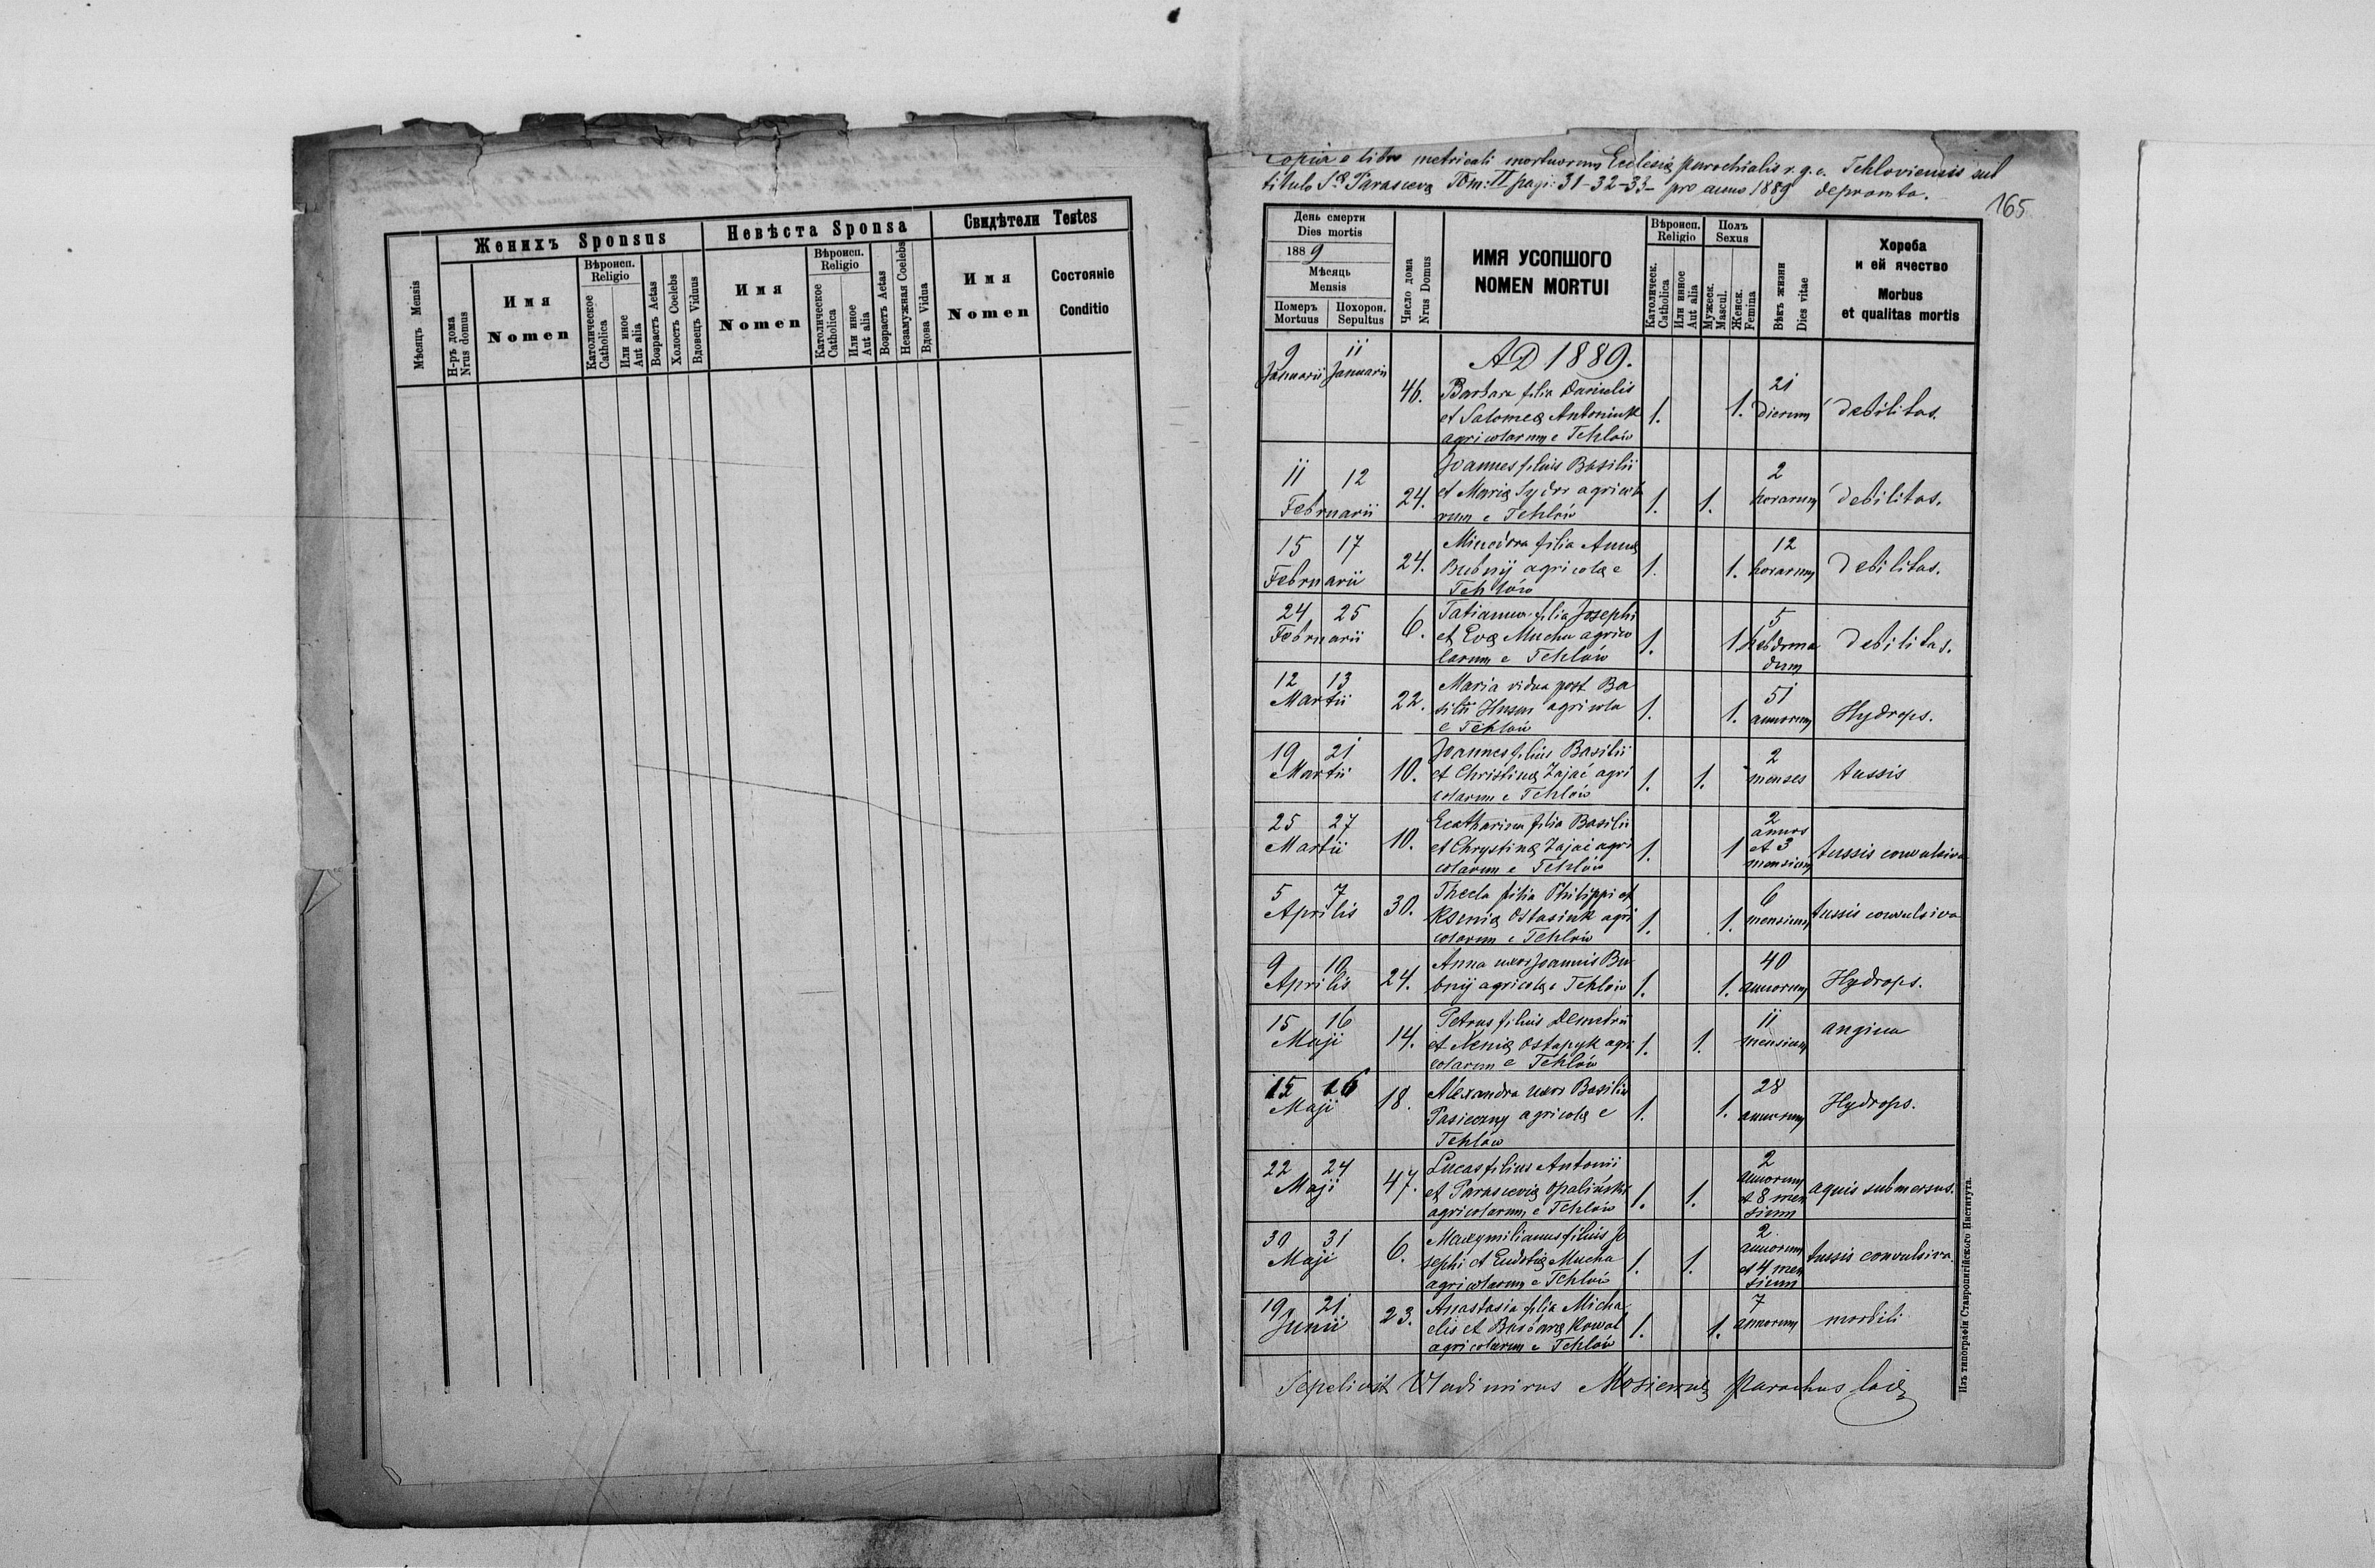 Женихъ Sponsus
Невѣста Sponsa
Свидѣтели Testes
Мѣсяць Mensis
Н-ръ дома
Nrus domus
Имя
Nomen
Вѣроисп.
Religio
Католическое
Catholica
Или иное
Aut alia
Возрастъ Aetas
Холостъ Coelebs
Вдовець Viduus
Имя
Nomen
Вѣроисп.
Religio
Католическое
Catholica
Или иное
Aut alia
Возрастъ Aetas
Незамужная Coelebs
Вдова Vidua
Имя
Nomen
Состояніе
Conditio
Copia e libro metricali mortuorum Ecclesiæ parochialis r. g. c. Tehloviensis sub
titulo S. Parascevæ Tom: II pagi: 31-32-33- pro anno 1889 depromta.
165
День смерти
Dies mortis
1889
Мѣсяць
Mensis
Померъ
Mortuus
Похорон.
Sepultus
Число дома
Nrus Domus
ИМЯ УСОПШОГО
NOMEN MORTUI
Вѣроисп.
Religio
Католическ.
Catholica
Или иное
Aut alia
Полъ
Sexus
Мужеск.
Mascul.
Женск.
Femina
Вѣкъ жизни
Dies vitae
Хороба
и ей ячество
Morbus
et qualitas mortis
AD 1889.
9 11
Januarii Januarii
46.
Barbara filia Danielis
et Salomeæ Antoniuk
agricolarum e Tehlów
1. 1.
21
dierum
debilitas.
11 12
Februarii
24.
Joannes filius Basilii
et Mariæ Sydor agricola
rum e Tehlów
1. 1.
2
horarum
debilitas.
15 17
Februarii
24.
filia Annæ
Bubnij agricolæ e
Tehlów
1. 1.
12
horarum
Debilitas.
24 25
Februarii
6.
Tatianna filia Josephi
et Evæ Mucha agrico
larum e Tehlów
1. 1
5
hebdoma
dum
Debilitas.
12 13
Martii
22.
Maria vidua post Ba
silii agricola
e Tehlów
1. 1.
51
annorum
Hydrops.
19 21
Martii
10.
Joannes filius Basilii
et Christinæ Zajać agri
colarum e Tehlów
1. 1.
2
menses
tussis
25 27
Martii
10.
Ecatharina filia Basilii
et Chrystinæ Zajać agri
colarum e Tehlów
1. 1
2
annos
et 3
mensium
tussis convulsiva
5 7
Aprilis
30.
Thecla filia Philippi et
Kseniæ Ostasiuk agri
colarum e Tehlów
1. 1.
6
mensium
tussis convulsiva
9 10
Aprilis
24.
Anna uxor Joannis Bu
bnij agricolæ e Tehlów
1. 1.
40
annorum
Hydrops.
15 16
Maji
14.
Petrus filius Demetrii
et Xeniæ Ostapyk agri
colarum e Tehlów
1. 1.
11
mensium
angina
15 16
Maji
18.
Alexandra uxor Basilii
Pasieczny agricolæ e
Tehlów
1. 1.
28
annorum
Hydrops.
22 24
Maji
47.
Lucas filius Antonii
et Parasceviæ Opaliński
agricolarum e Tehlów
1. 1.
2
annorum
et 8 men
sium
aquis submersus.
30 31
Maji
6.
Maxymilianus filius Jo
sephi et Eudokiæ Mucha
agricolarum e Tehlów
1. 1.
2
annorum
et 4 men
sium
tussis convulsiva.
19 21
Junii
23.
Anastasia filia Micha
elis et Barbaræ Kowal
agricolarum e Tehlów
1. 1.
7
annorum
morbili
Sepelivit Vladimirus parochus loci
Изъ типографіи Ставропигійского Института.